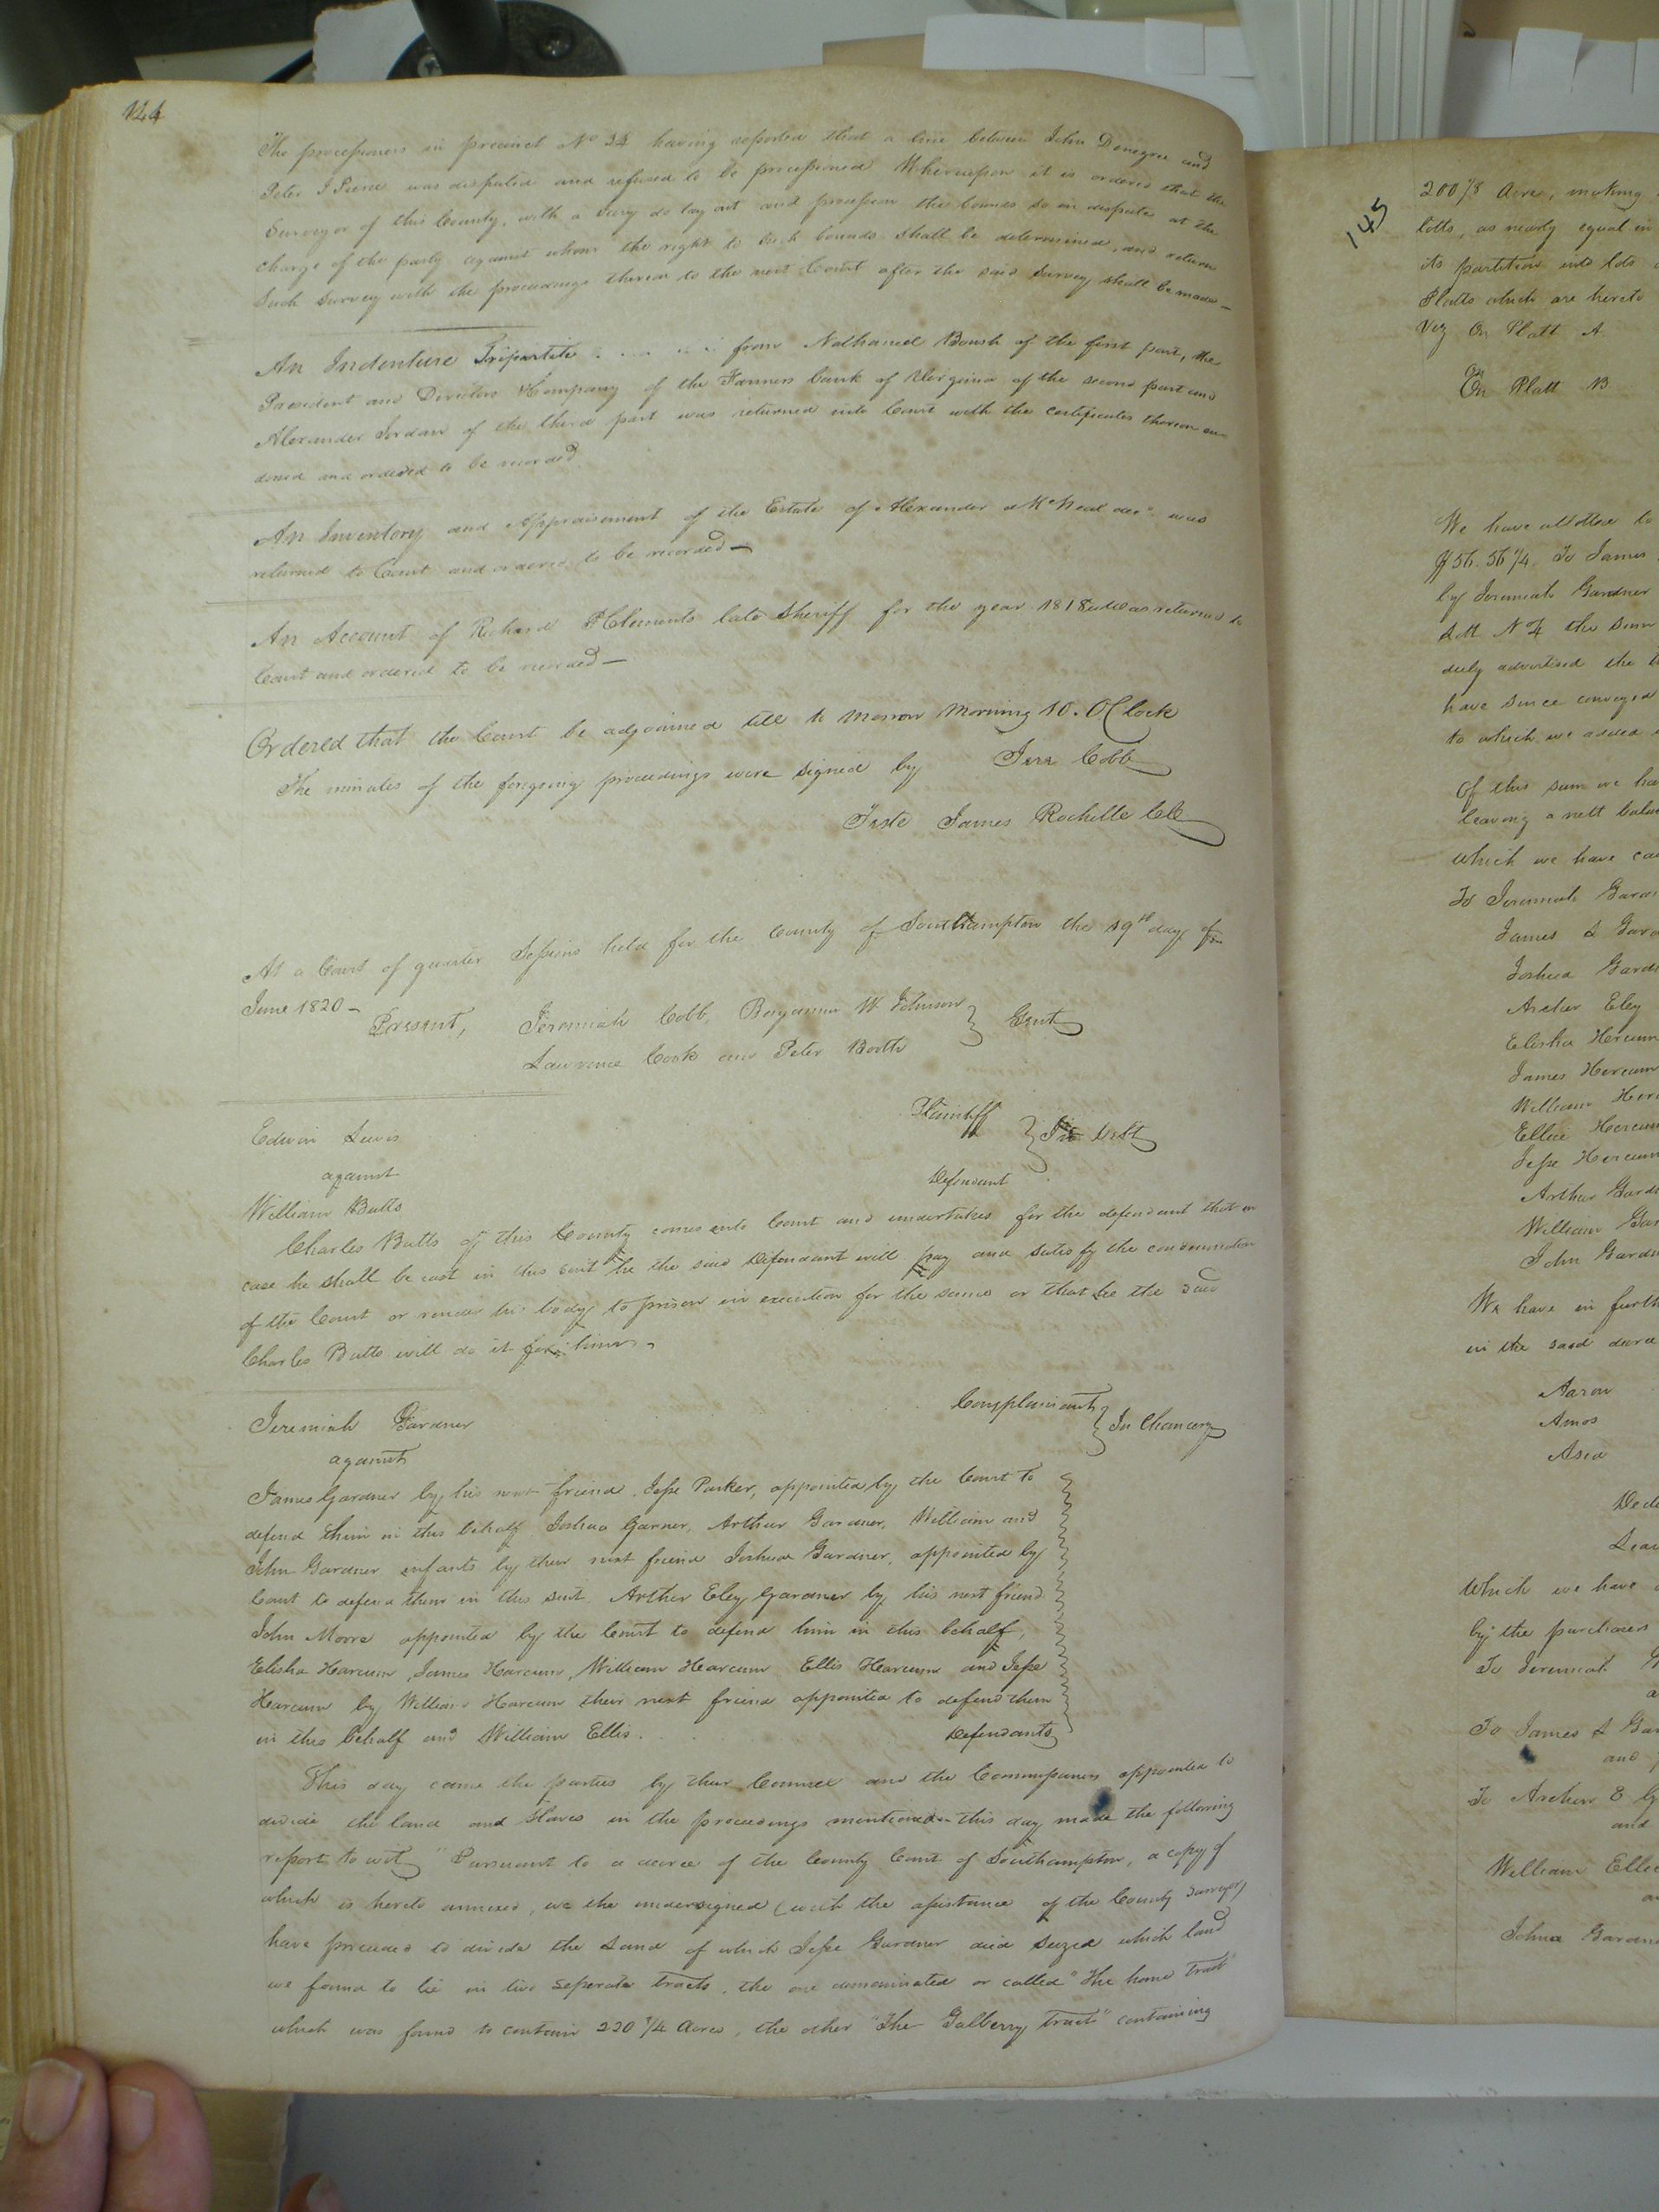 144
The processioners in precinct No 34 having reported that a line between John Denegree and
Peter J Pierce was disputed and refused to be processioned Whereupon it is ordered that the
Surveyor of this County, with a Jury do lay out and procession the bounds so in dispute at the
charge of the party against whom the right to such bounds shall be determined, and return
Such Survey with the proceedings thereon to the next Court after the said Survey shall be made—
An Indenture Tripartite from Nathaniel Boush of the first part, the
President and Directors & Company of the Farmers bank of Virginia of the second part and
Alexander Jordan of the third part was returned into Court with the certificates thereon en
dorsed and ordered to be recorded
An Inventory and Appraisement of the Estate of Alexander McNeal decd was
returned to Court and ordered to be recorded—
An Account of Richard Clements late Sheriff for the year 1818 was returned to
Court and ordered to be recorded—
Ordered that the Court be adjourned till to morrow Morning 10. OClock
The minutes of the foregoing proceedings were signed by Jere Cobb
Teste James Rochelle ClC
At a Court of quarter Sessions held for the County of Southampton the 19th day of
June 1820—
Present, Jeremiah Cobb, Benjamin W Johnson
Lawrence Cook and Peter Booth } Gent
Edwin Lewis Plaintiff
against } In Debt
William Butts Defendant
Charles Butts of this County comes into Court and undertakes for the defendant that in
case he shall be cast in this suit he the said Defendant will pay and satisfy the condemnation
of the Court or render his body to prison in execution for the same or that he the said
Charles Butts will do it for him—
Jeremiah Gardner Complainant
against } In Chancery
James Gardner by his next friend Jesse Parker, appointed by the Court to
defend them in this behalf Joshua Garner, Arthur Gardner, William and
John Gardner infants by their next friend Joshua Gardner, appointed by
Court to defend them in this suit Arther Eley Gardner by his next friend
John Moore appointed by the Court to defend him in this behalf,
Elisha Harcum, James Harcum, William Harcum Ellis Harcum and Jesse
Harcum by William Harcum their next friend appointed to defend them
in this behalf and William Ellis. Defendants
This day came the parties by their Council and the Commissioners appointed to
divide the land and slaves in the proceedings mentioned this day made the following
report to wit, "Pursuant to a decree of the County Court of Southampton, a copy of
which is hereto annexed, we the undersigned (with the assistance of the County Surveyor)
have proceeded to divide the Land of which Jesse Gardner died seized which land
we found to lie in two seperate tracts, the one denominated or called "The home tract"
which was found to contain 230 3/4 Acres, the other "The Galberry tract" containing
145
200 1/8 Acre, making
lotts, as nearly equal in
its partition into lots
Platts which are hereto
Viz On Platt A
On Platt B
We have allotted to
$56.56 1/4. To James
by Jeremiah Gardner
Lott No 4 the sum
duly advertised the
have since conveyed
to which we added
Of this sum we ha
leaving a nett bala
which we have
To Jeremiah Gard
James L Gard
Joshua Gard
Archer Eley
Elisha Harcum
James Harcum
William Har
Ellis Harcum
Jesse Harcum
Arthur Gard
William Gar
John Gardn
We have in furth
in the said decree
Aaron
Amos
Asia
Dedu
Leav
Which we have
by the purchasers
To Jeremiah
To James L Gar
and
To Archer E G
and
William Ellis
Johua Gardn